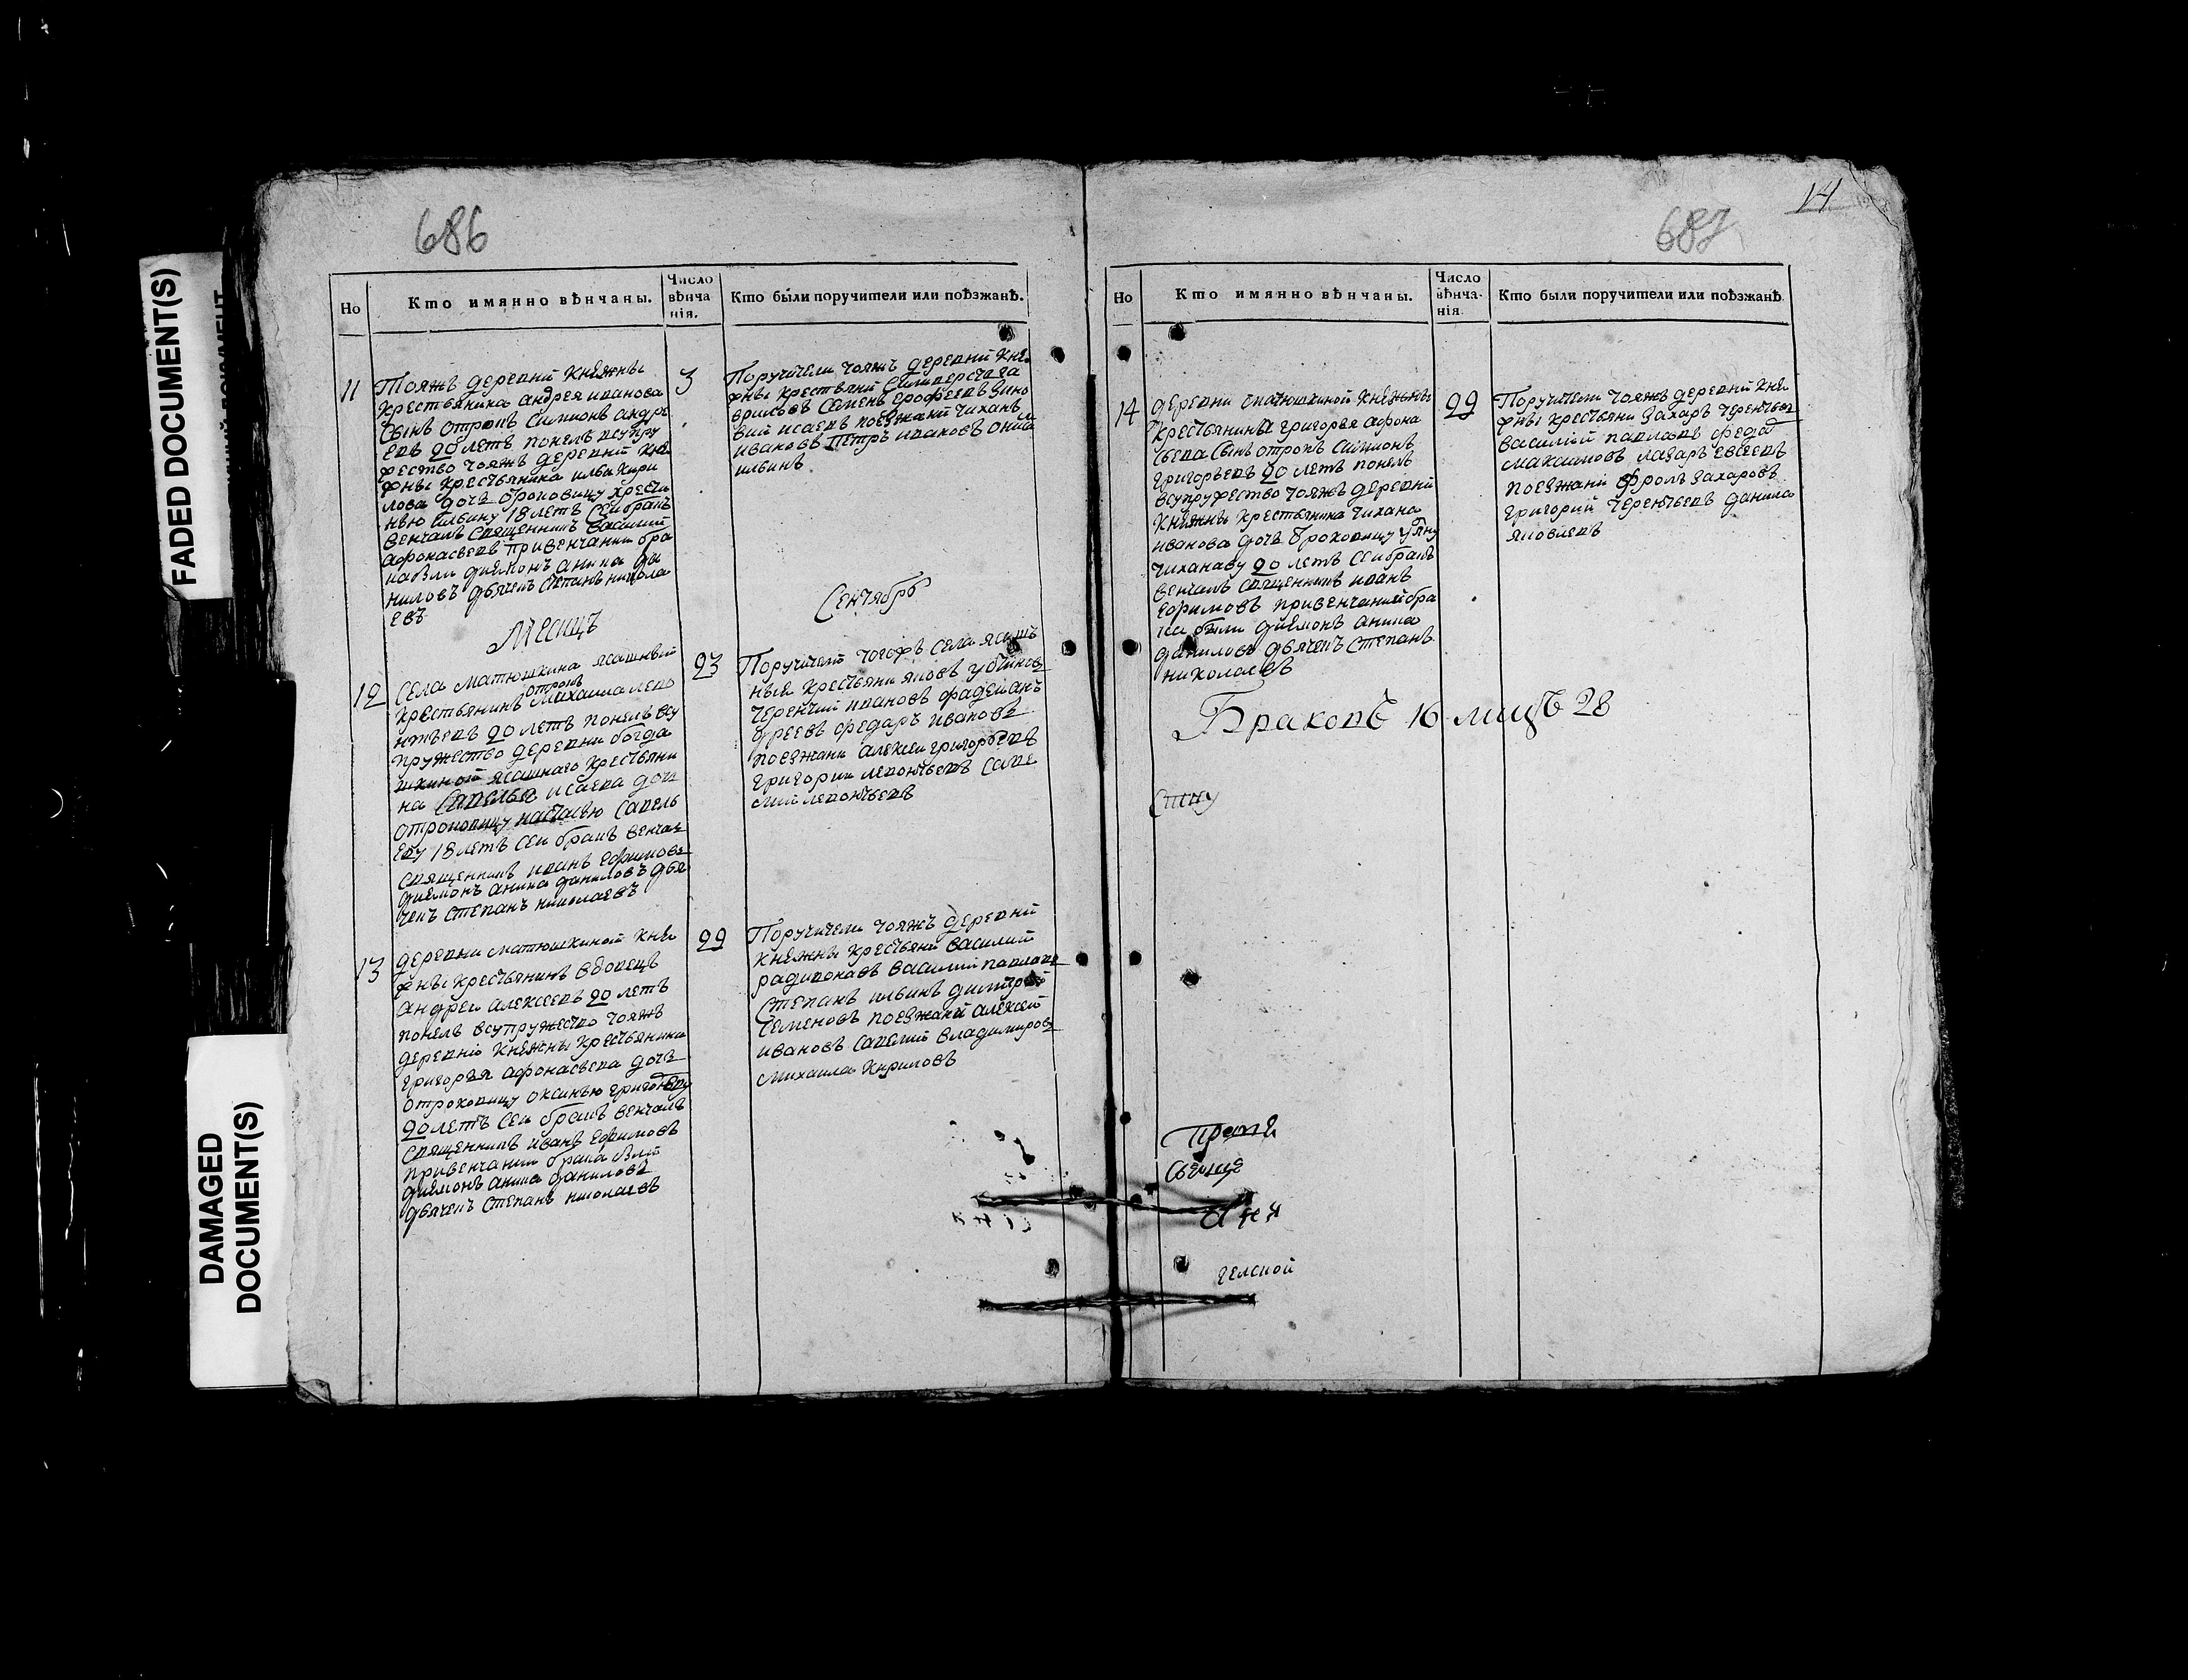 FADED DOCUMENT(S)
DAMAGED
DOCUMENT(S)
686
Но
Кто имянно вѣнчаны.
Число
вѣнча
нія.
Кто были поручители или поѣзжанѣ.
11
Тояжъ деревни Княжны
крестьянина андрея иванова
сынъ отрокъ Симионъ андре
евъ 20 летъ понелъ всупру
жество тояжъ деревни Кня
жны крестьянина ильи Кири
лова дочь отроковицу
ильину 18 летъ Сеи бракъ
венчалъ Священникъ Василий
афонасьевъ привенчании бра
ка были диямонъ аника да
ниловъ дьячекъ Степанъ никола
евъ
3
Поручители тояжъ деревни Кня
жны крестьяни
Семенъ ерофеевъ Зино
вий исаевъ поезжани Тиханъ
ивановъ Петръ ивановъ
ильинъ
Месяцъ
Сентябрь
12
Села матюшкина ясашной
отрокъ
крестьянинъ Михаила лево
нтьевъ 20 летъ понелъ всу
пружество деревни богда
шкиной ясашнаго крестьяни
на Савелья исаева дочь
отроковицу настасью савель
еву 18 летъ сеи бракъ венчалъ
священникъ иванъ ефимовъ
диямонъ аника даниловъ дья
чекъ степанъ николаевъ
23
Поручители тогожъ села ясаш
ныя крестьяни яковъ
Терентий ивановъ фадей ан
дреевъ федаръ ивановъ
поезжани алексеи григорьевъ
григории левонтьевъ саве
лий левонтьевъ
13
деревни матюшкиной Кня
жны крестьянинъ вдовецъ
андреи алексеевъ 20 летъ
понелъ всупружество тояжъ
деревни Княжны крестьянина
григорья афонасьева дочь
отроковицу оксинью григорьеву
20 летъ сеи бракъ венчалъ
священникъ иванъ ефимовъ
привенчании брака были
диямонъ аника даниловъ
дьячекъ степанъ николаевъ
22
Поручители тояжъ деревни
княжны крестьяни василий
радивонавъ василий павлавъ
степанъ ильинъ димитрей
семеновъ поезжани алексей
ивановъ савелий владимировъ
михаила кириловъ
14
687
Но
Кто имянно вѣнчаны.
Число
вѣнча-
нія.
Кто были поручители или поѣзжанѣ
14
деревни матюшкиной княжны
крестьянина григорья афона
сьева сынъ отрокъ симионъ
григорьевъ 20 летъ понелъ
всупружество тояжъ деревни
Княжны крестьянина тихана
иванова дочь отроковицу
тиханаву 20 летъ сеи бракъ
венчалъ священникъ иванъ
ефимовъ привенчании бра
ка были диямонъ аника
даниловъ дьячекъ степанъ
николаевъ
22
Поручители тояжъ деревни Кня
жны крестьяни Захаръ терентьевъ
василий павлавъ федаръ
максимовъ лазаръ евсеевъ
поезжани фролъ Захаровъ
григорий терентьевъ данила
яковлевъ
Браковъ 16 лицъ 28